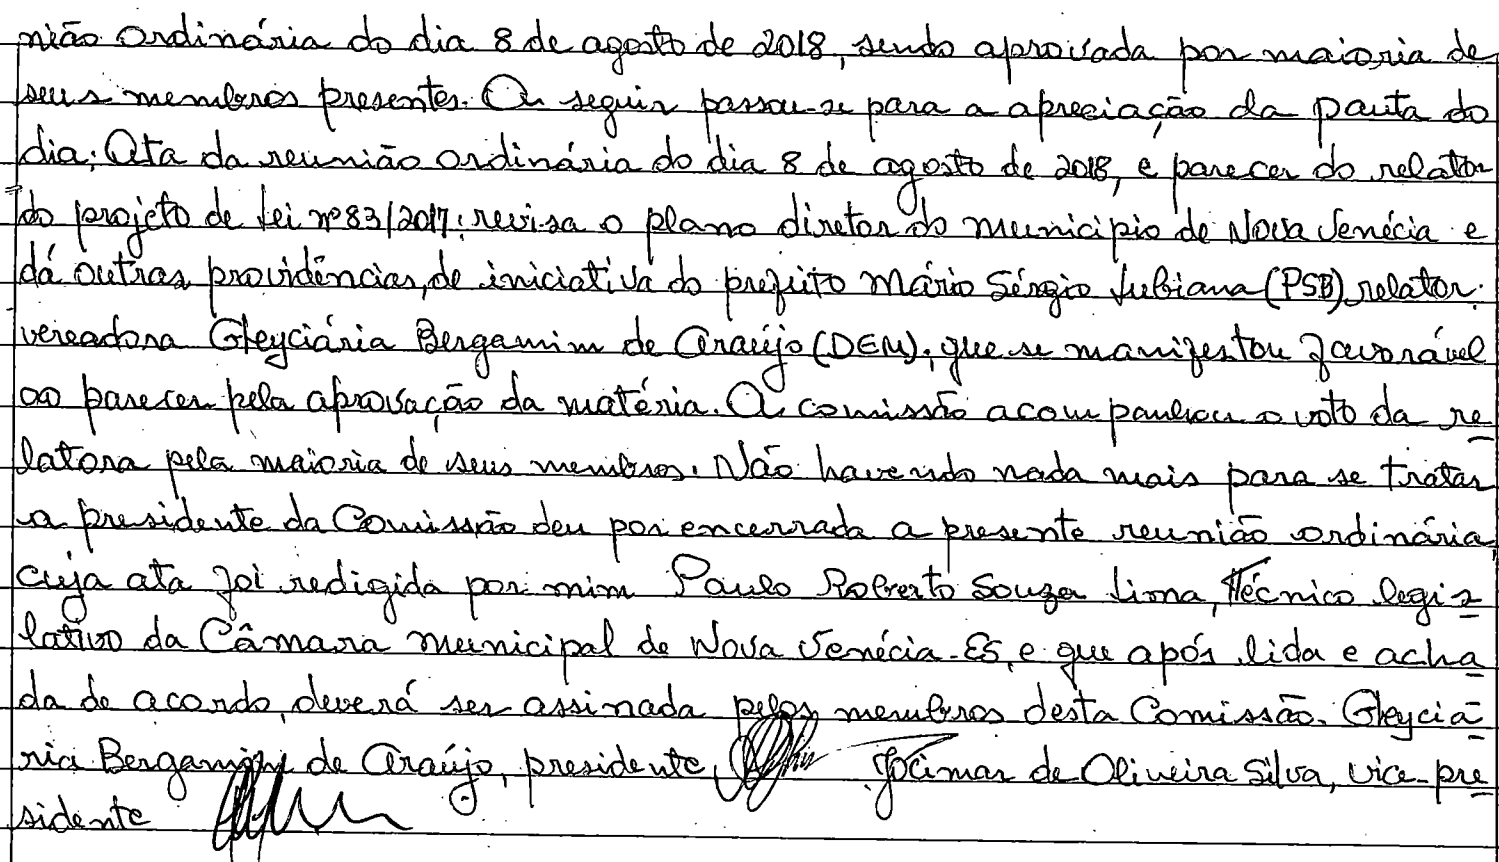 nião ordinária do dia 8 de agosto de 2018, sendo aprovada por maioria de
seus membros presentes. A seguir passou-se para a apreciação da pauta do
dia: Ata da reunião ordinária do dia 8 de agosto de 2018, e parecer do relator
do projeto de Lei nº 83/2017: revisa o plano diretor do município de Nova Venécia e
dá outras providências, de iniciativa do prefeito Mário Sérgio Lubiana (PSB), relator:
vereadora Gleyciária Bergamim de Araújo (DEM), que se manifestou favorável
ao parecer pela aprovação da matéria. A comissão acompanhou o voto da re
latora pela maioria de seus membros. Não havendo nada mais para se tratar
a presidente da Comissão deu por encerrada a presente reunião ordinária,
cuja ata foi redigida por mim Paulo Roberto Souza Lima, Técnico legis
lativo da Câmara municipal de Nova Venécia-ES, e que após lida e acha
da de acordo, deverá ser assinada pelos membros desta Comissão. Gleyciá
ria Bergamim de Araújo, presidente, Jocimar de Oliveira Silva, vice-pre
sidente